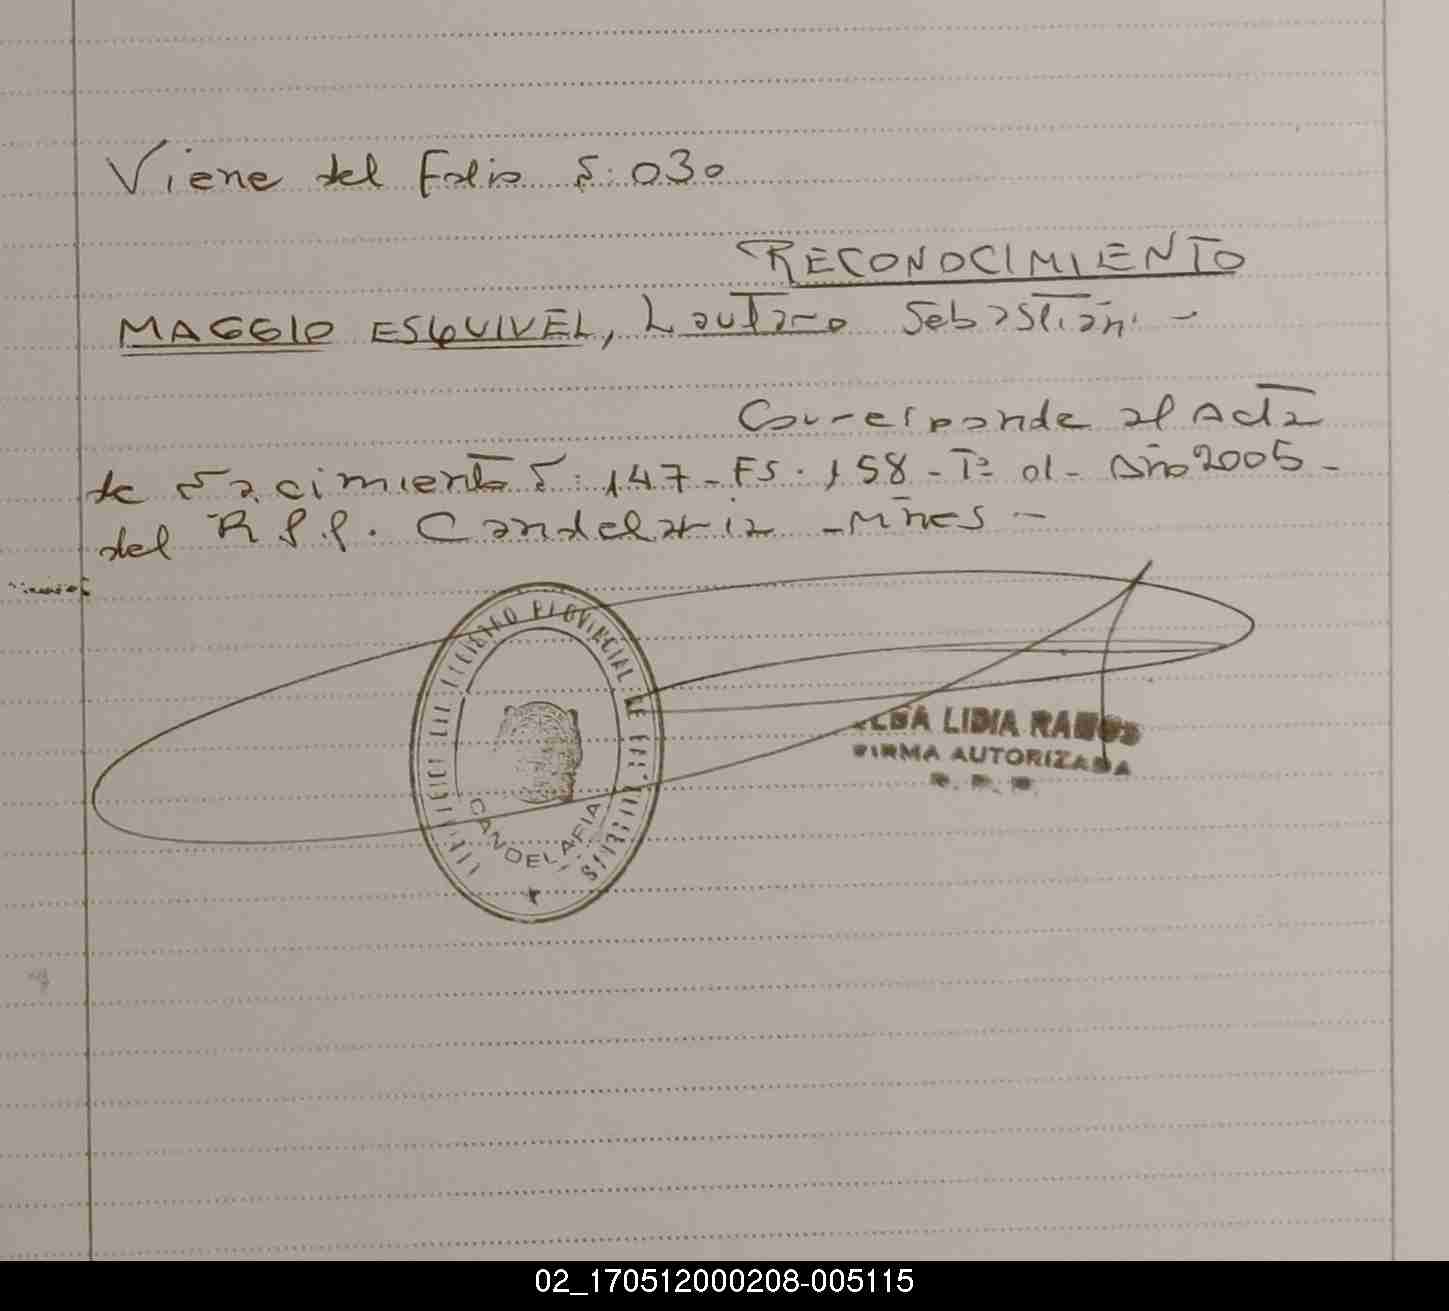 Viene del Folio N: 030
RECONOCIMIENTO
MAGGIO ESQUIVEL, Lautaro Sebastián. -
Corresponde al Acta
de Nacimiento N: 147 - Fs. 158 - Tº 01 - Año 2005 -
del R.P.P. Candelaria - Mnes -
REGISTRO PROVINCIAL DE LAS PERSONAS
CANDELARIA
ELBA LIDIA RAMOS
FIRMA AUTORIZADA
R. P. P.
02_170512000208-005115